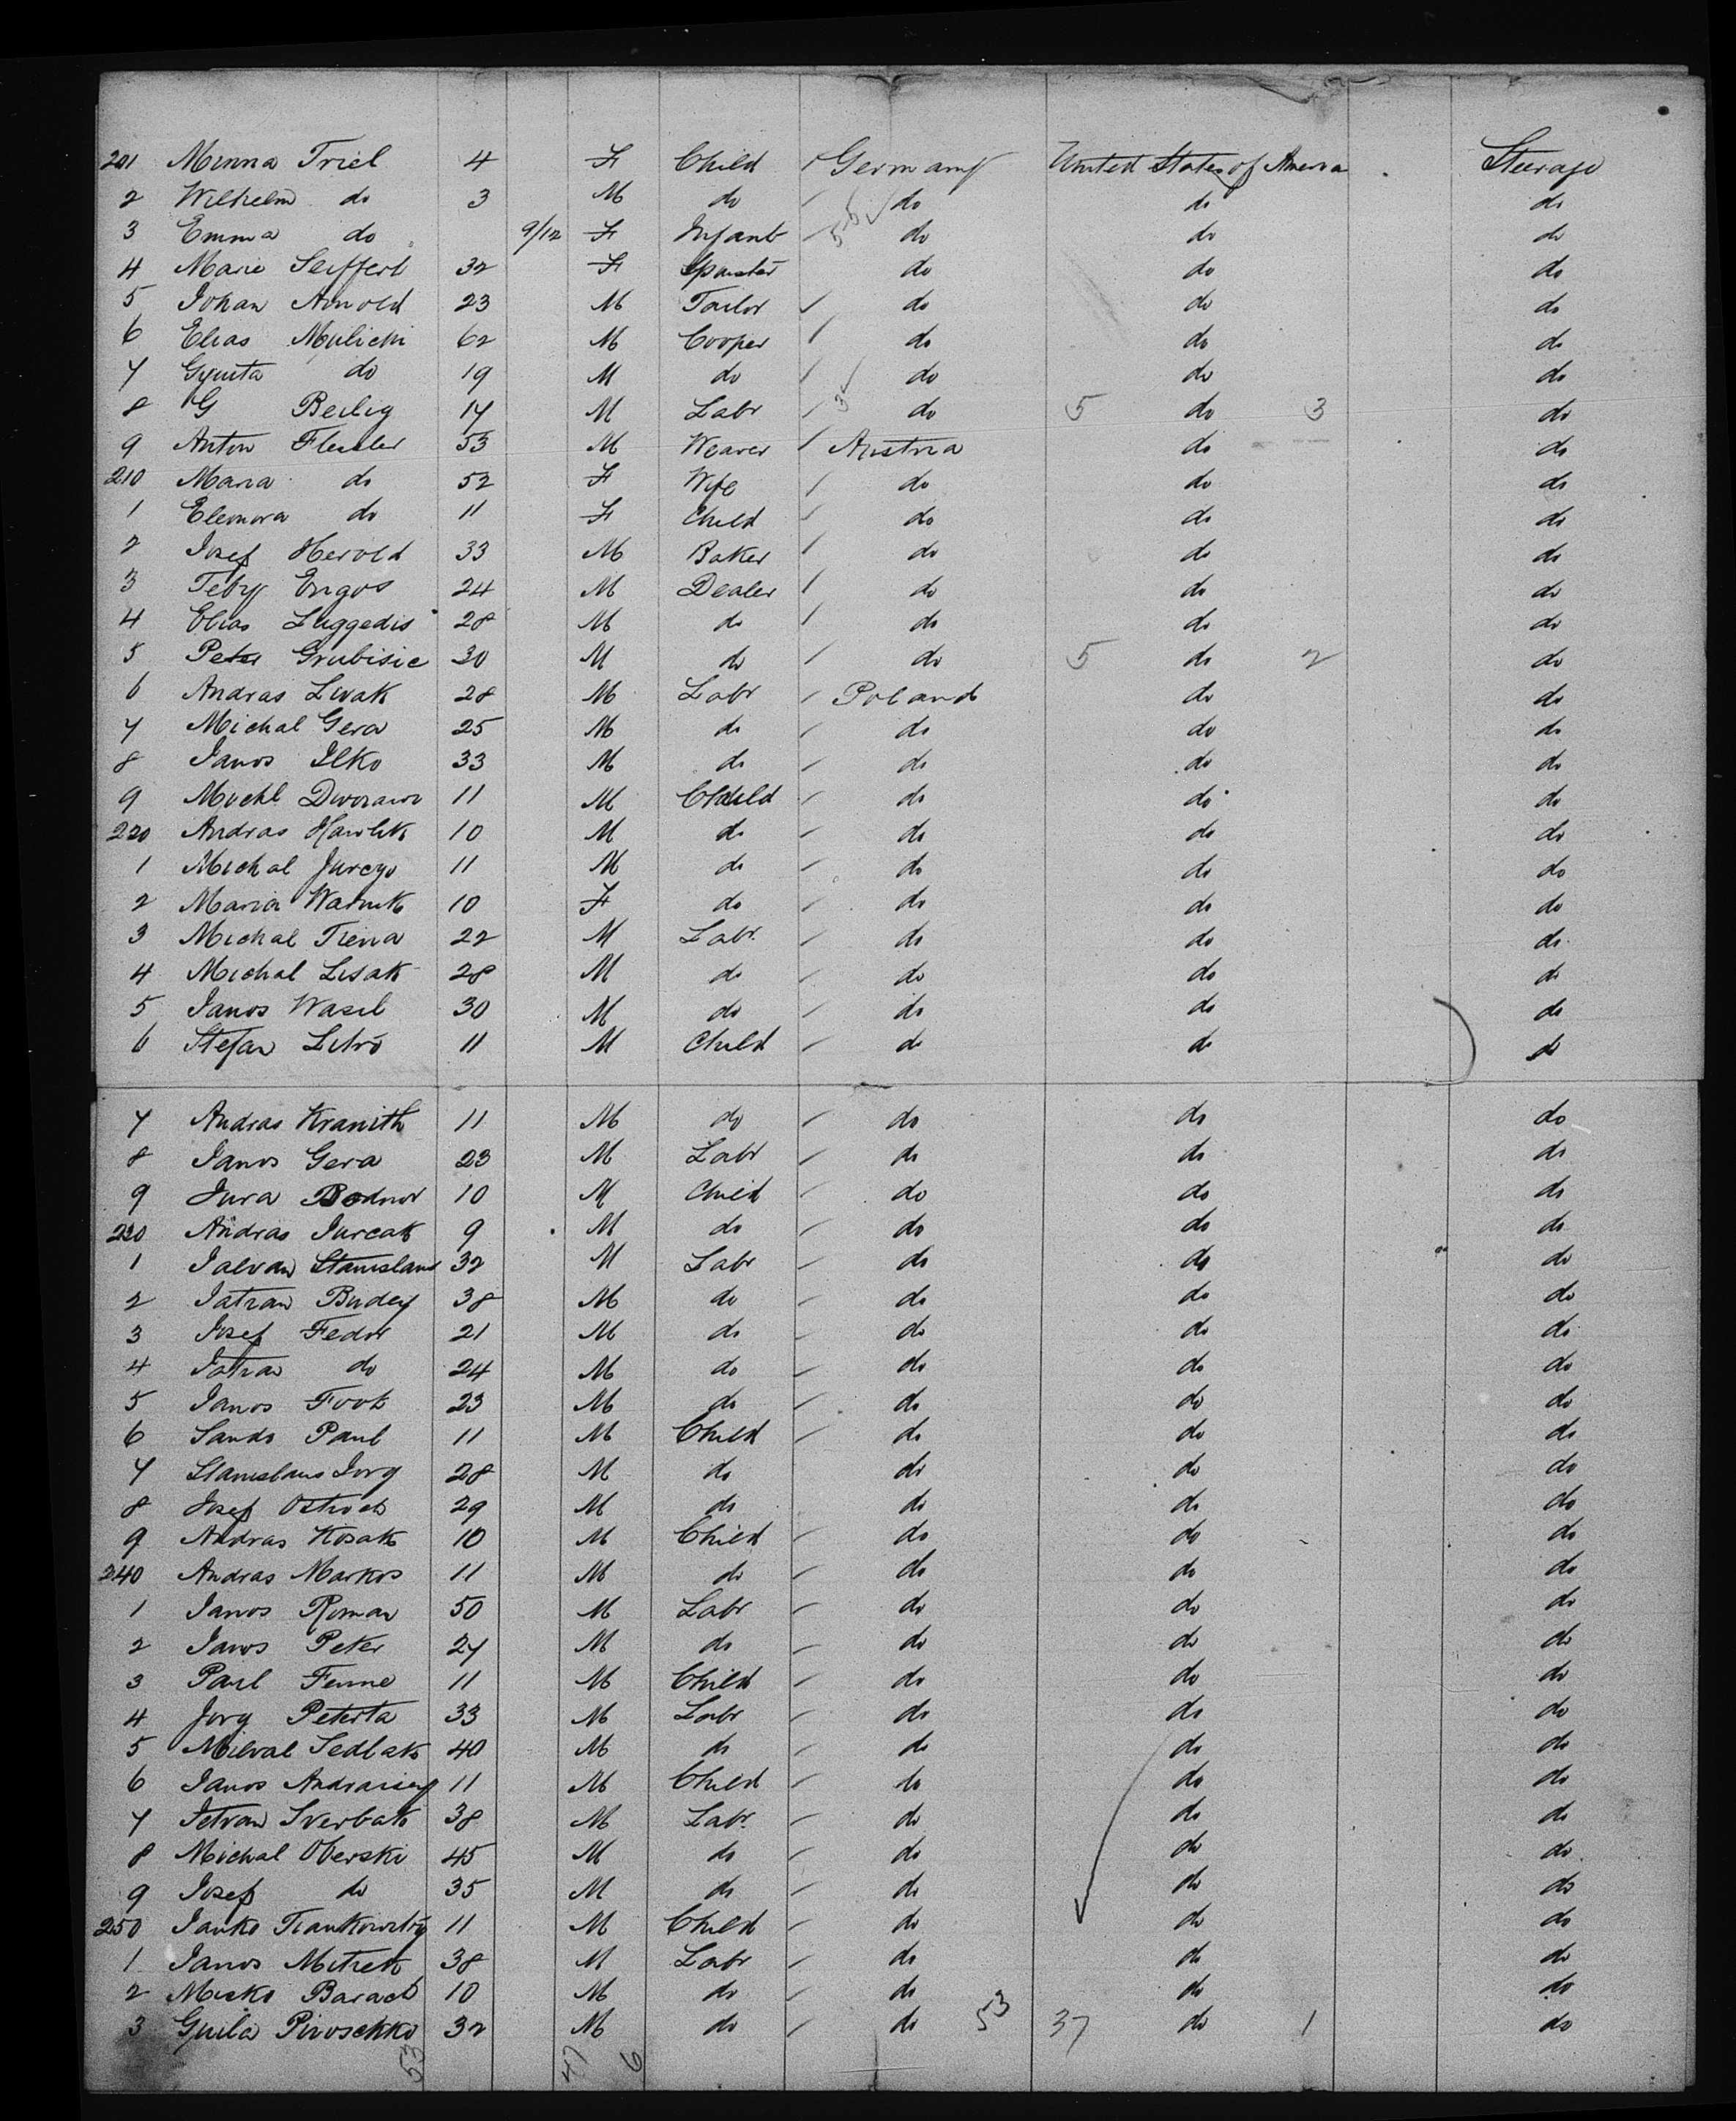 201 Minna Triel 4 F Child Germany United States of America Steerage
2 Wilhelm do 3 M do do do do
3 Emma do 9/12 F Infant do do do
4 Marie Seiffert 32 F Spinster do do do
5 Johan Arnold 23 M Tailor do do do
6 Elias 62 M Cooper do do do
7 do 19 M do do do do
8 G Beilig 17 M Labr 3 do 5 do 3 do
9 Anton 53 M Weaver Austria do do
210 Maria do 52 F Wife do do do
1 Eleonora do 11 F Child do do do
2 Josef Herold 33 M Baker do do do
3 Engos 24 M Dealer do do do
4 Elias Luggedis 28 M do do do do
5 Peter Grubisic 30 M do do 5 do 2 do
6 Andras Livak 28 M Labr Poland do do
7 Michal Gera 25 M do do do do
8 Janos Ilko 33 M do do do do
9 Michl 11 M Child do do do
220 Andras Hawlik 10 M do do do do
1 Michal Jurczo 11 M do do do do
2 Maria Warnik 10 F do do do do
3 Michal 22 M Labr do do do
4 Michal Lisak 28 M do do do do
5 Janos Wasil 30 M do do do do
6 Stefan 11 M Child do do do
7 Andras Kranith 11 M do do do do
8 Janos Gera 23 M Labr do do do
9 Jura Bodnor 10 M Child do do do
230 Andras Jurcak 9 M do do do do
1 Stanislaus 32 M Labr do do do
2 Budey 38 M do do do do
3 Josef Fedor 21 M do do do do
4 do 24 M do do do do
5 Janos Foot 23 M do do do do
6 Paul 11 M Child do do do
7 Stanislaus Jorg 28 M do do do do
8 Josef 29 M do do do do
9 Andras Kosak 10 M Child do do do
240 Andras Markos 11 M do do do do
1 Janos Roman 50 M Labr do do do
2 Janos Peter 27 M do do do do
3 Paul 11 M Child do do do
4 Jorg Peterta 33 M Labr do do do
5 Sedlak 40 M do do do do
6 Janos 11 M Child do do do
7 Sverbak 38 M Labr do do do
8 Michal Oberski 45 M do do do do
9 Josef do 35 M do do do do
250 Janko 11 M Child do do do
1 Janos 38 M Labr do do do
2 Misko Barach 10 M do do do do
3 Guila Piroschko 32 M do do 53 37 do 1 do
53 47 6